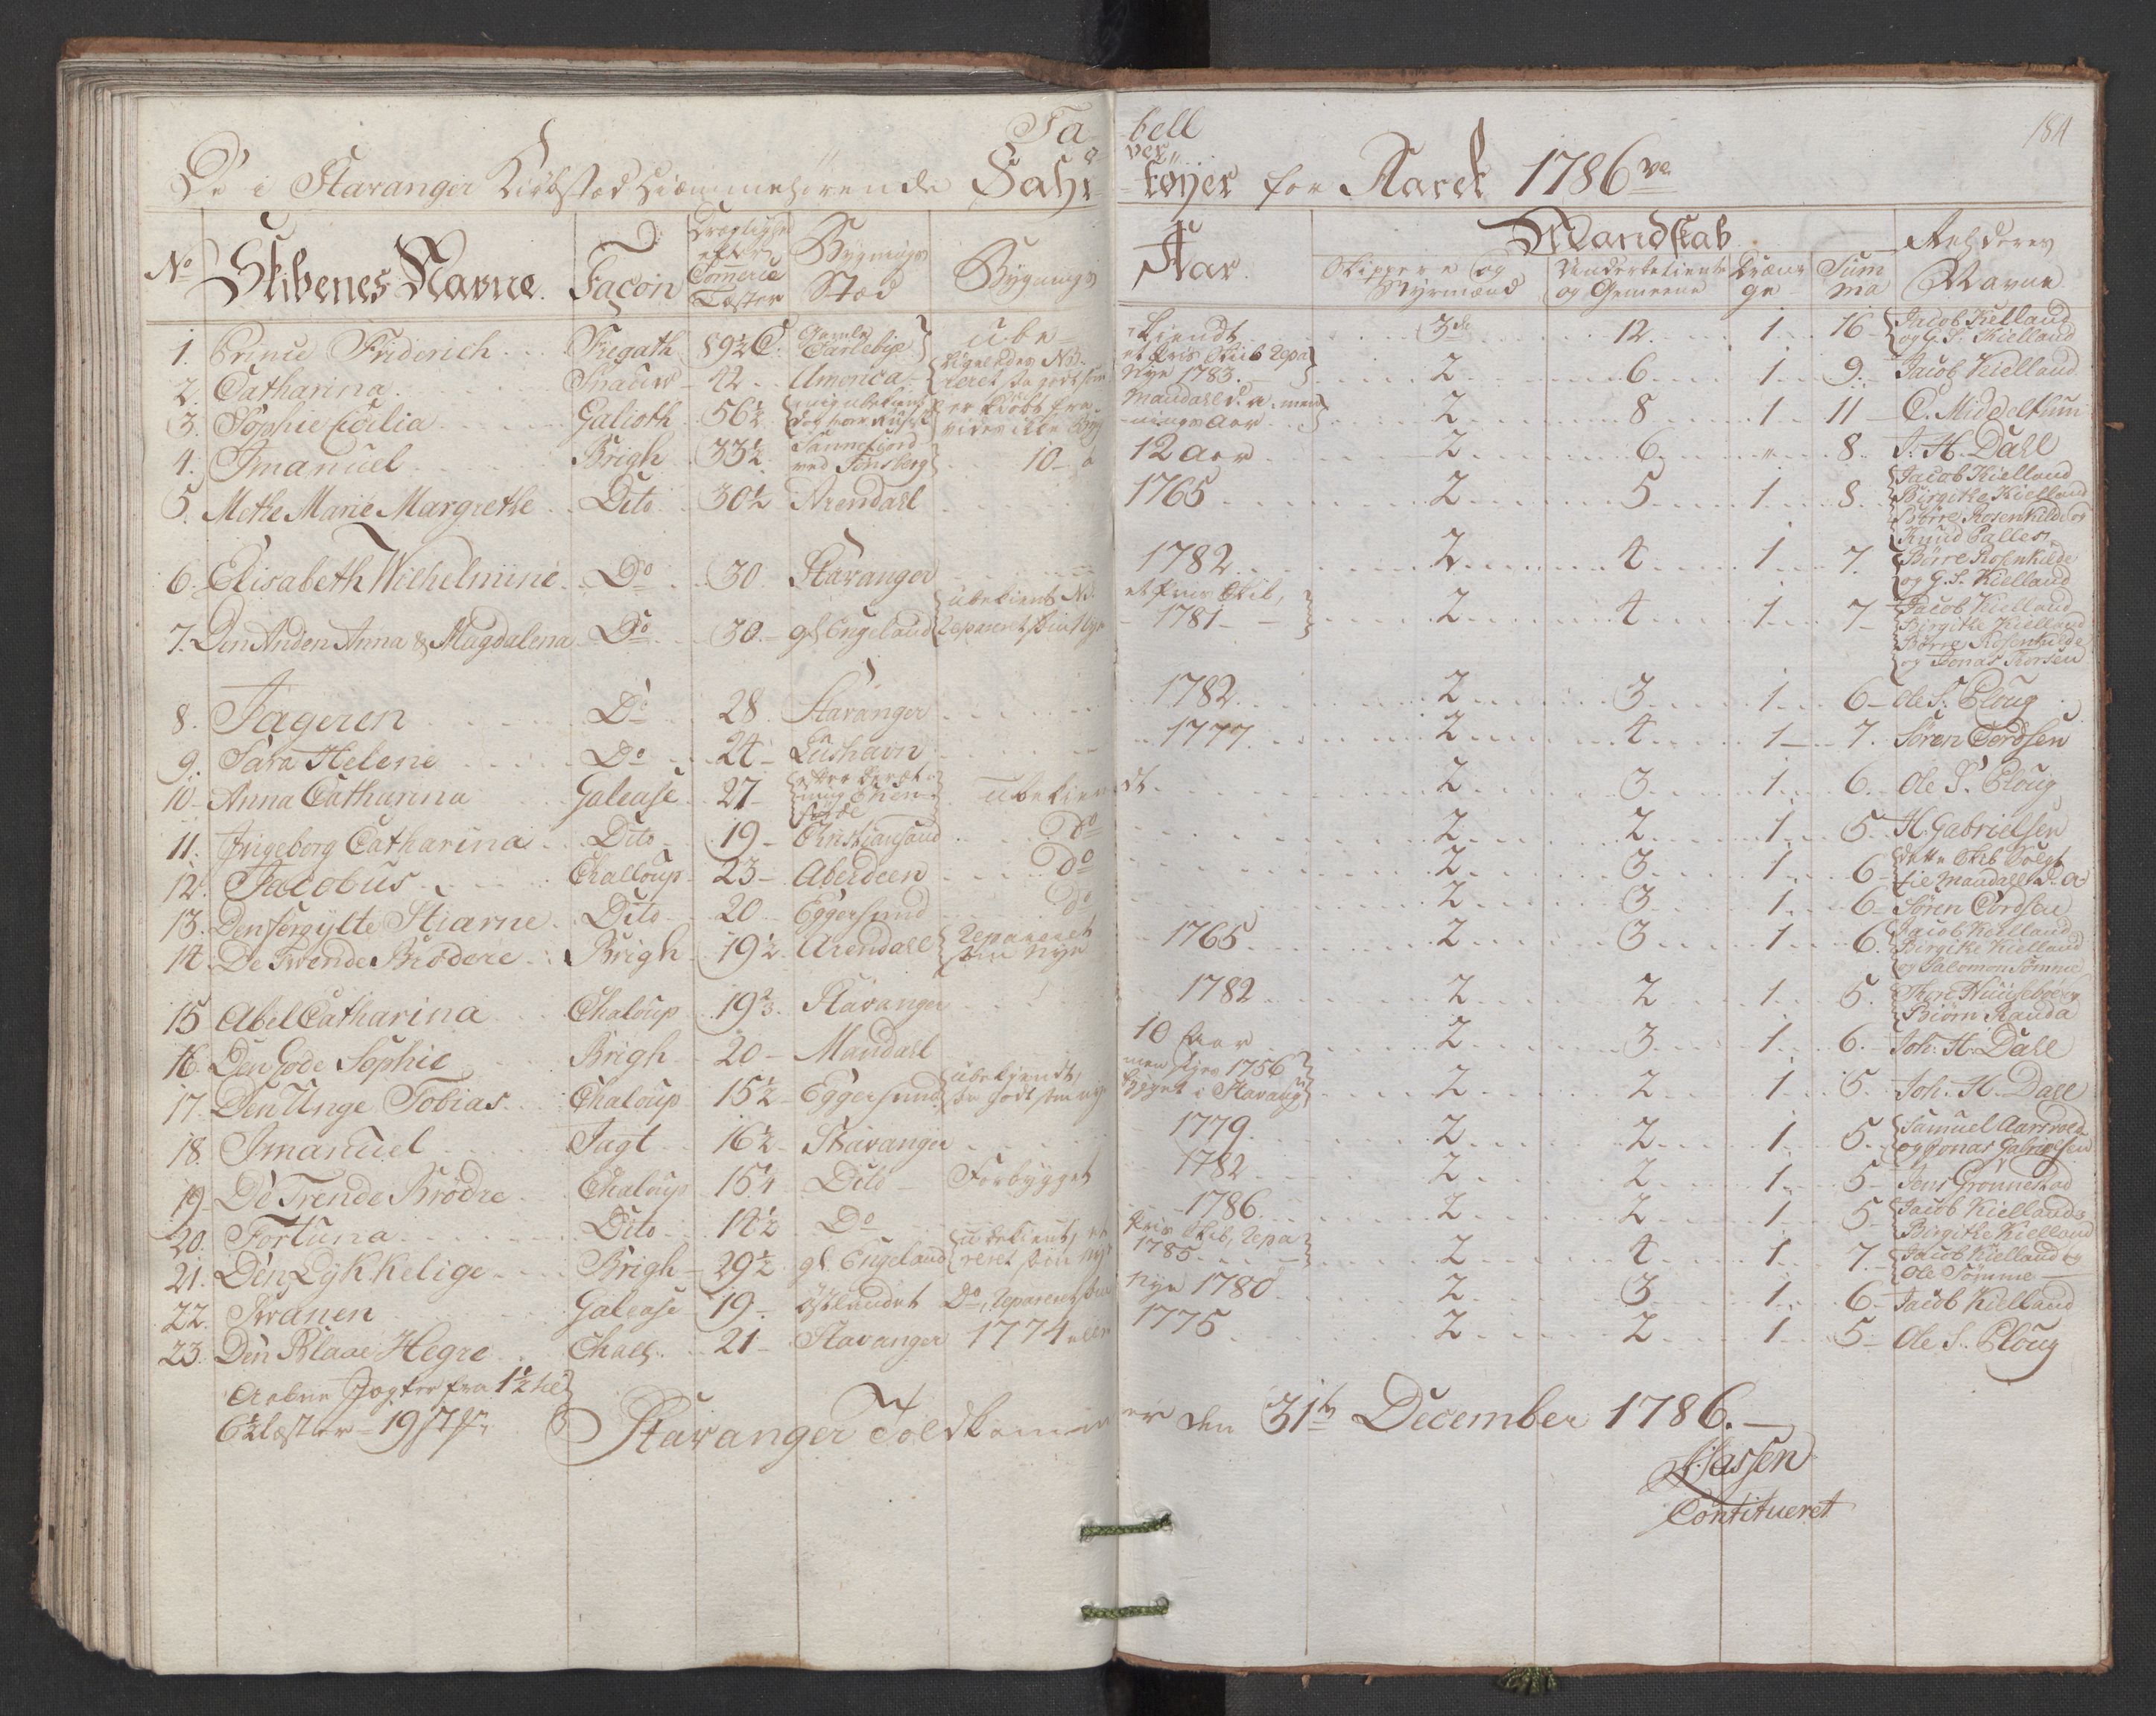 Ta-bell
ver
184
De i Stavanger Kiøbstæd Hiemmehørende Fahr-tøyer for Aaret 1786ve
No Skibenes Navne. Façon Drægtighed efter Comerce Læster Bygnings Stæd Bygnings Aar. Mandskab Rehderes Navne
Skippere og Styrmænd Underbetiente og Gemeene Drænge Summa
1. Prince Friderich Fregath 89½ C. Gamle Carlebye ube-kiendt 3de 12 1 16 Jacob Kielland og G. S. Kielland
2. Catharina Snauw 42 America Nye 1783. 2 6 1 9. Jacob Kielland
3. Sophie Cicilia Galioth 56½ 2 8 1 11 C. Middelthun
4. Imanuel Brigh 33½ Sannefiord ved Tønsberg 10 à 12 Aar 2 6 „ 8. J. H. Dall
5. Mette Marie Margrethe Dito 30½ Arendall 1765 2 5 1 8. Jacob Kielland Birgithe Kielland Børre Rosenkilde og Knud Palles.
6. Elisabeth Wilhelmine Do 30 Stavanger 1782 2 4 1 7. Børre Rosenkilde og G. S. Kielland
7. Den Anden Anna & Magdalena Do 30. gl. Engeland 1781 2 4 1 7 Jacob Kielland Birgithe Kielland Børre Rosenkilde og Jonas Thorsen
8. Jageren Do 28 Stavanger 1782 2 3 1 6 Ole S. Ploug
9. Sara Helene Do 24 Lushavn 1777 2 4 1 7. Søren Cordsen
10 Anna Catharina Galease 27 ubekiendt 2 3 1 6. Ole S. Ploug
11. Ingeborg Catharina Dito 19 Christiansand Do 2 2 1 5. H. Gabrielsen
12. Jacobus Challoup 23 Aberdeen Do 2 3 1 6 dette Skib Solgt til Mandall d. A.
13. Den forgylte Stierne Dito 20 Eggersund Do 2 3 1 6 Søren Cordsen
14. De Tvende Brødre Brigh 19½ Arendall Repareret som Nye 1765 2 3 1 6. Jacob Kielland Birgithe Kielland og Salomon Sømme
15 Abel Catharina Chaloup 19⅔ Stavanger 1782 2 2 1 5. Thore og Biørn Randa
16. Den Gode Sophie Brigh 20 Mandall 10 Aar 2 3 1 6. Joh. H. Dall
17. Den Unge Tobias Chaloup 15½ Eggersund ubekiendt, saa godt som nye men siges 1756 bygt i Stavang. 2 2 1 5. Joh. H. Dall
18. Imanuel Jagt 16½ Stavanger 1779 2 2 1 5. Samuel Aarsvold og Jonas Gabrielsen
19 De Trende Brødre Chaloup 15¼ Dito Forbygget 1782 2 2 1 5 Jens Grønnestad
20. Fortuna Dito 14½ Do 1786 2 2 1 5 Jacob Kielland og Birgithe Kielland
21. Den Lykkelige Brigh 29½ gl. Engeland ubekient, et Pris Skib, Repareret som Nye 1785 2 4 1 7. Jacob Kielland og Ole Sømme
22. Svanen Galease 19. Østlandet Do, Repareret som Nye 1780 2 3 1 6. Jacob Kielland
23. Den Blaae Hegre Chall. 21 Stavanger 1774 eller 1775 2 2 1 5 Ole S. Ploug
Aabne Jagter fra 1½ til
6½ Læster 19
Stavanger Toldkammer den 31te December 1786.
Hassen
Contitueret